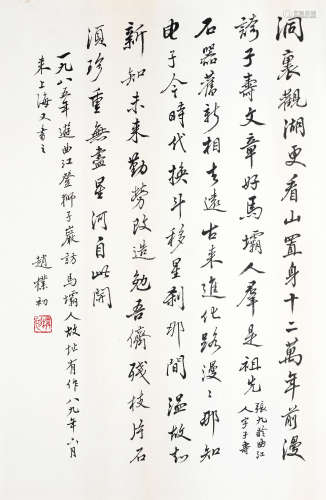 洞裏觀湖更看山置身十二萬年前漫
誇子壽文章好馬壩人羣是祖先
張九齡曲江
人字子壽
石器舊新相去遠古來進化路漫〻那知
电子今時代換斗移星刹那間溫故知
新知未来勤勞改造勉吾儕殘枝片石
須珍重無盡星河自此開
一九八五年遊曲江登獅子巖訪馬壩人故址有作八九年六月
来上海又書之
趙樸初